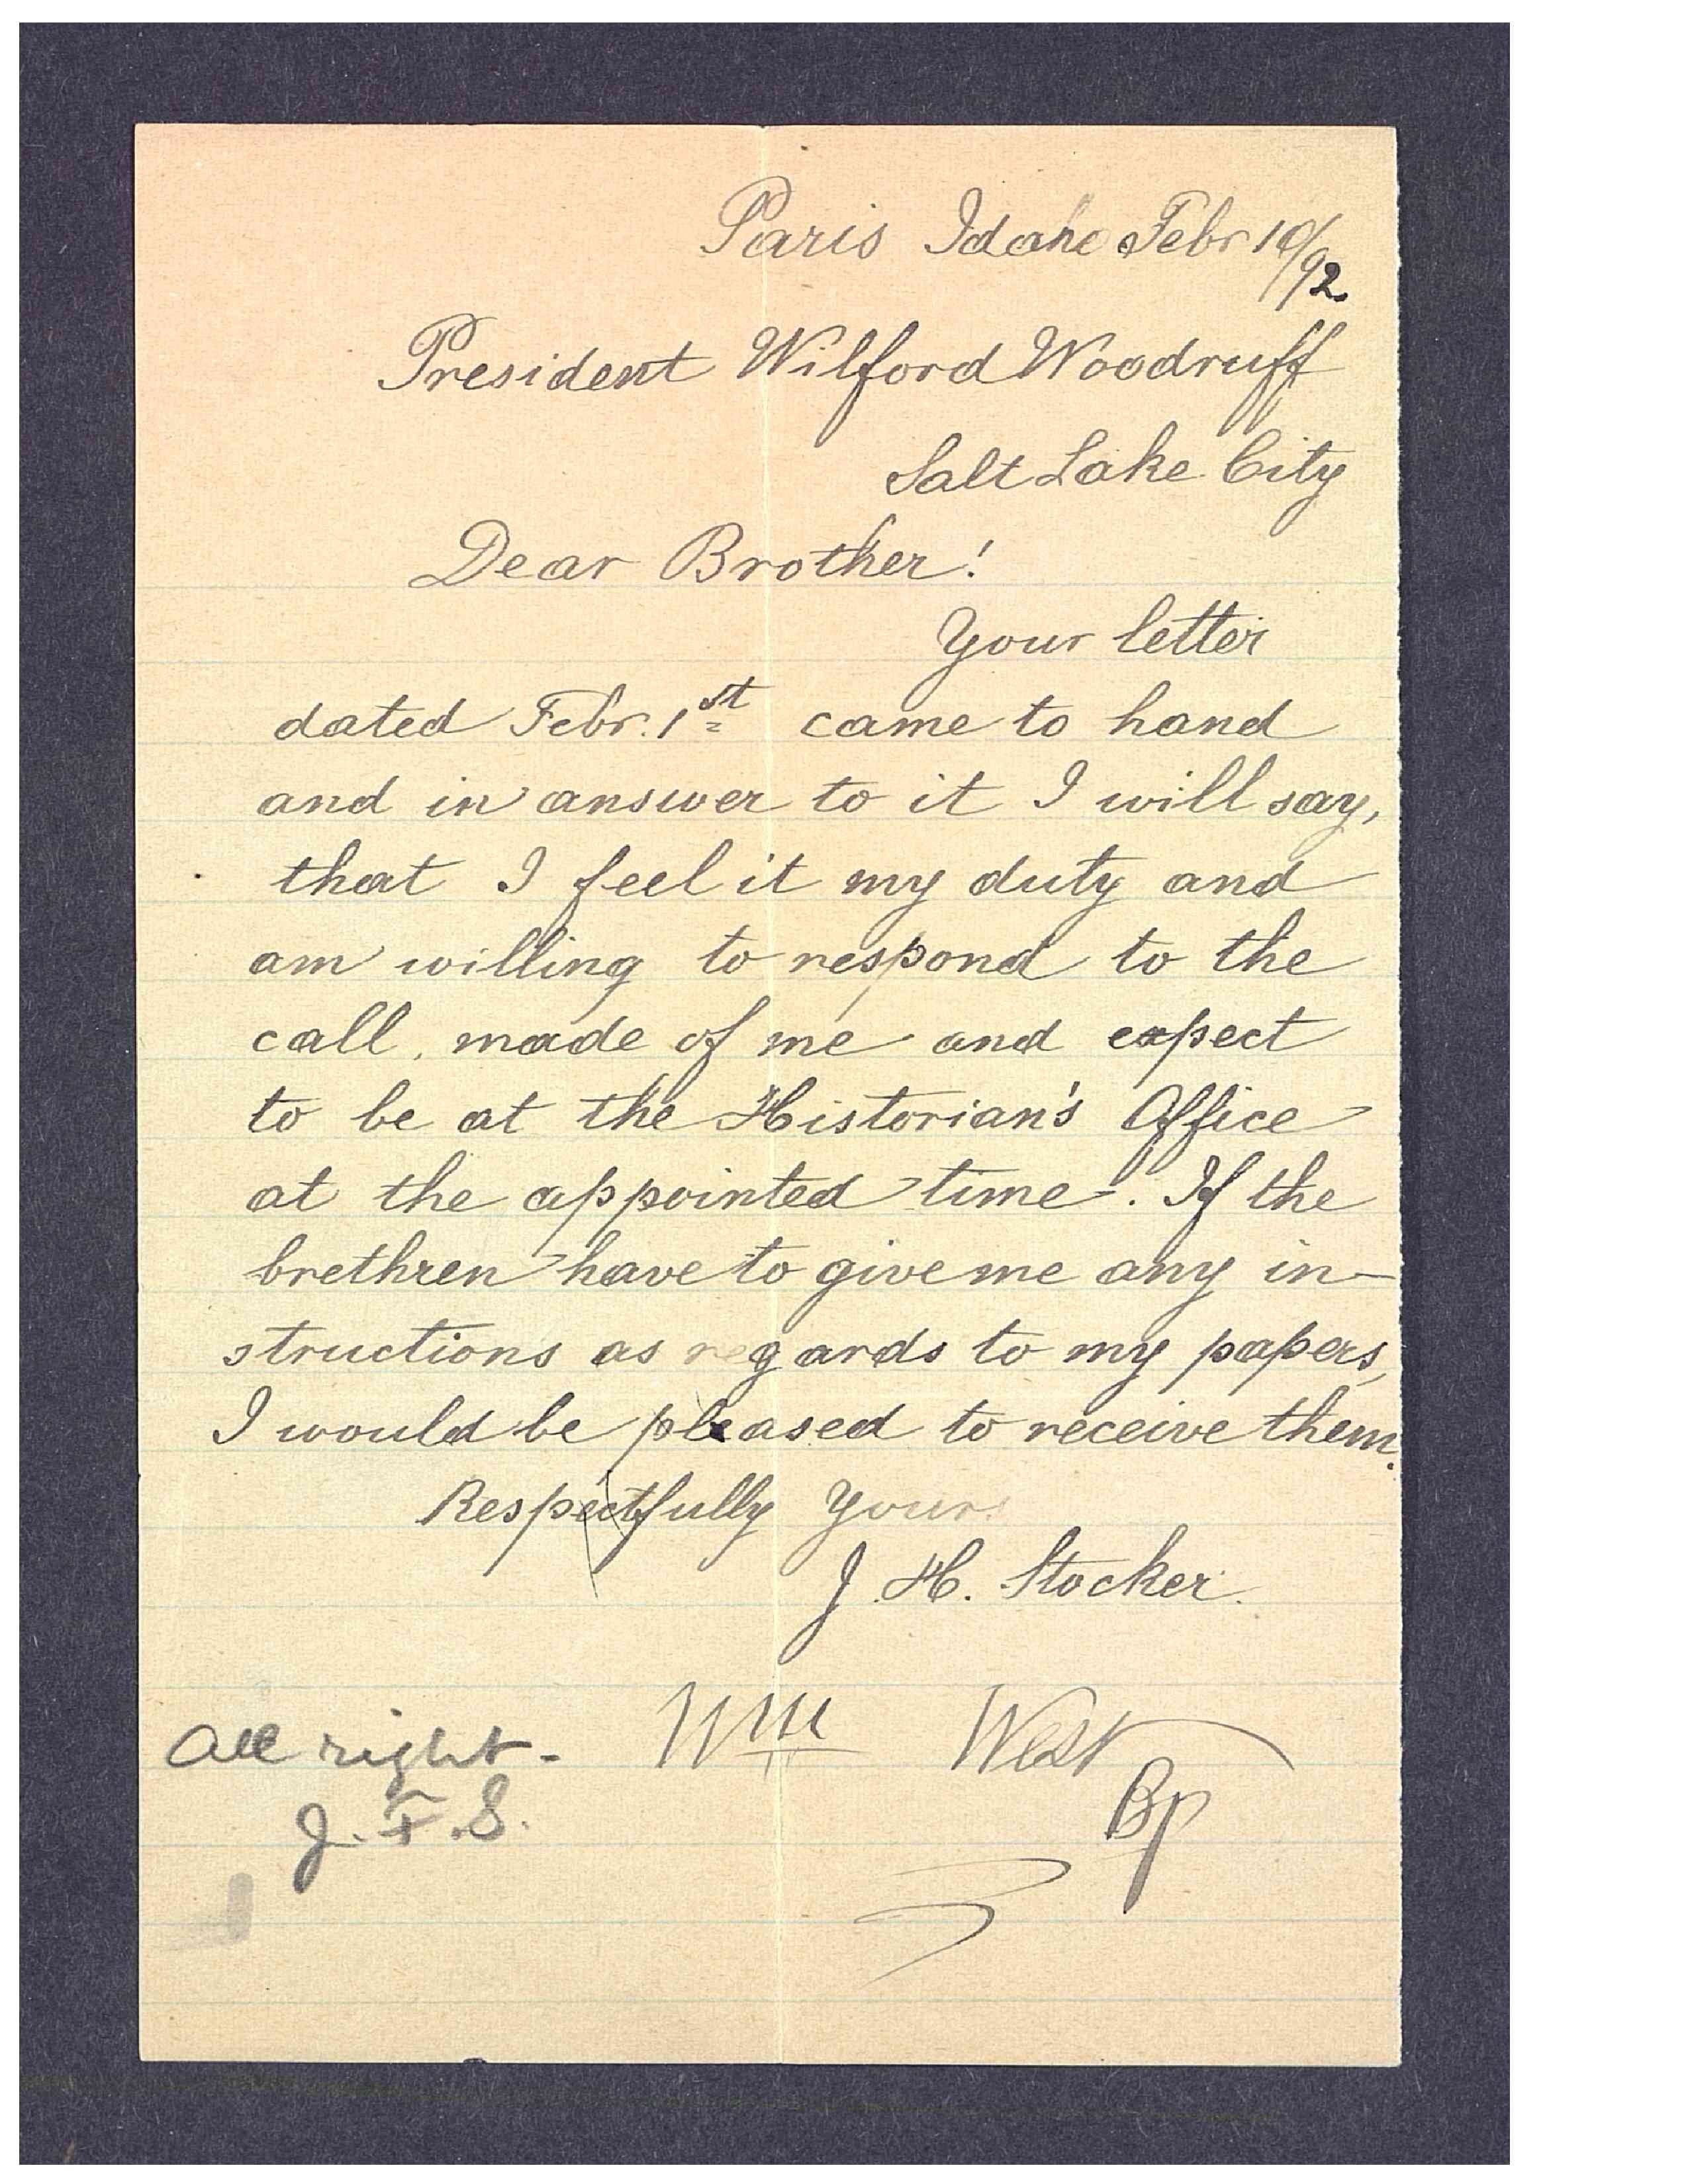 Paris Idaho Febr 10/92
President Wilford Woodruff
Salt Lake City
Dear Brother!
Your letter
dated Febr. 1st came to hand
and in answer to it I will say,
that I feel it my duty and
am willing to respond to the
call, made of me and expect
to be at the Historian's Office
at the appointed time. If the
brethren have to give me any in-
structions as regards to my papers,
I would be pleased to receive them.
Respectfully Yours
J. H. Stocker.
Wm West
Bp
All right -
J. F. S.